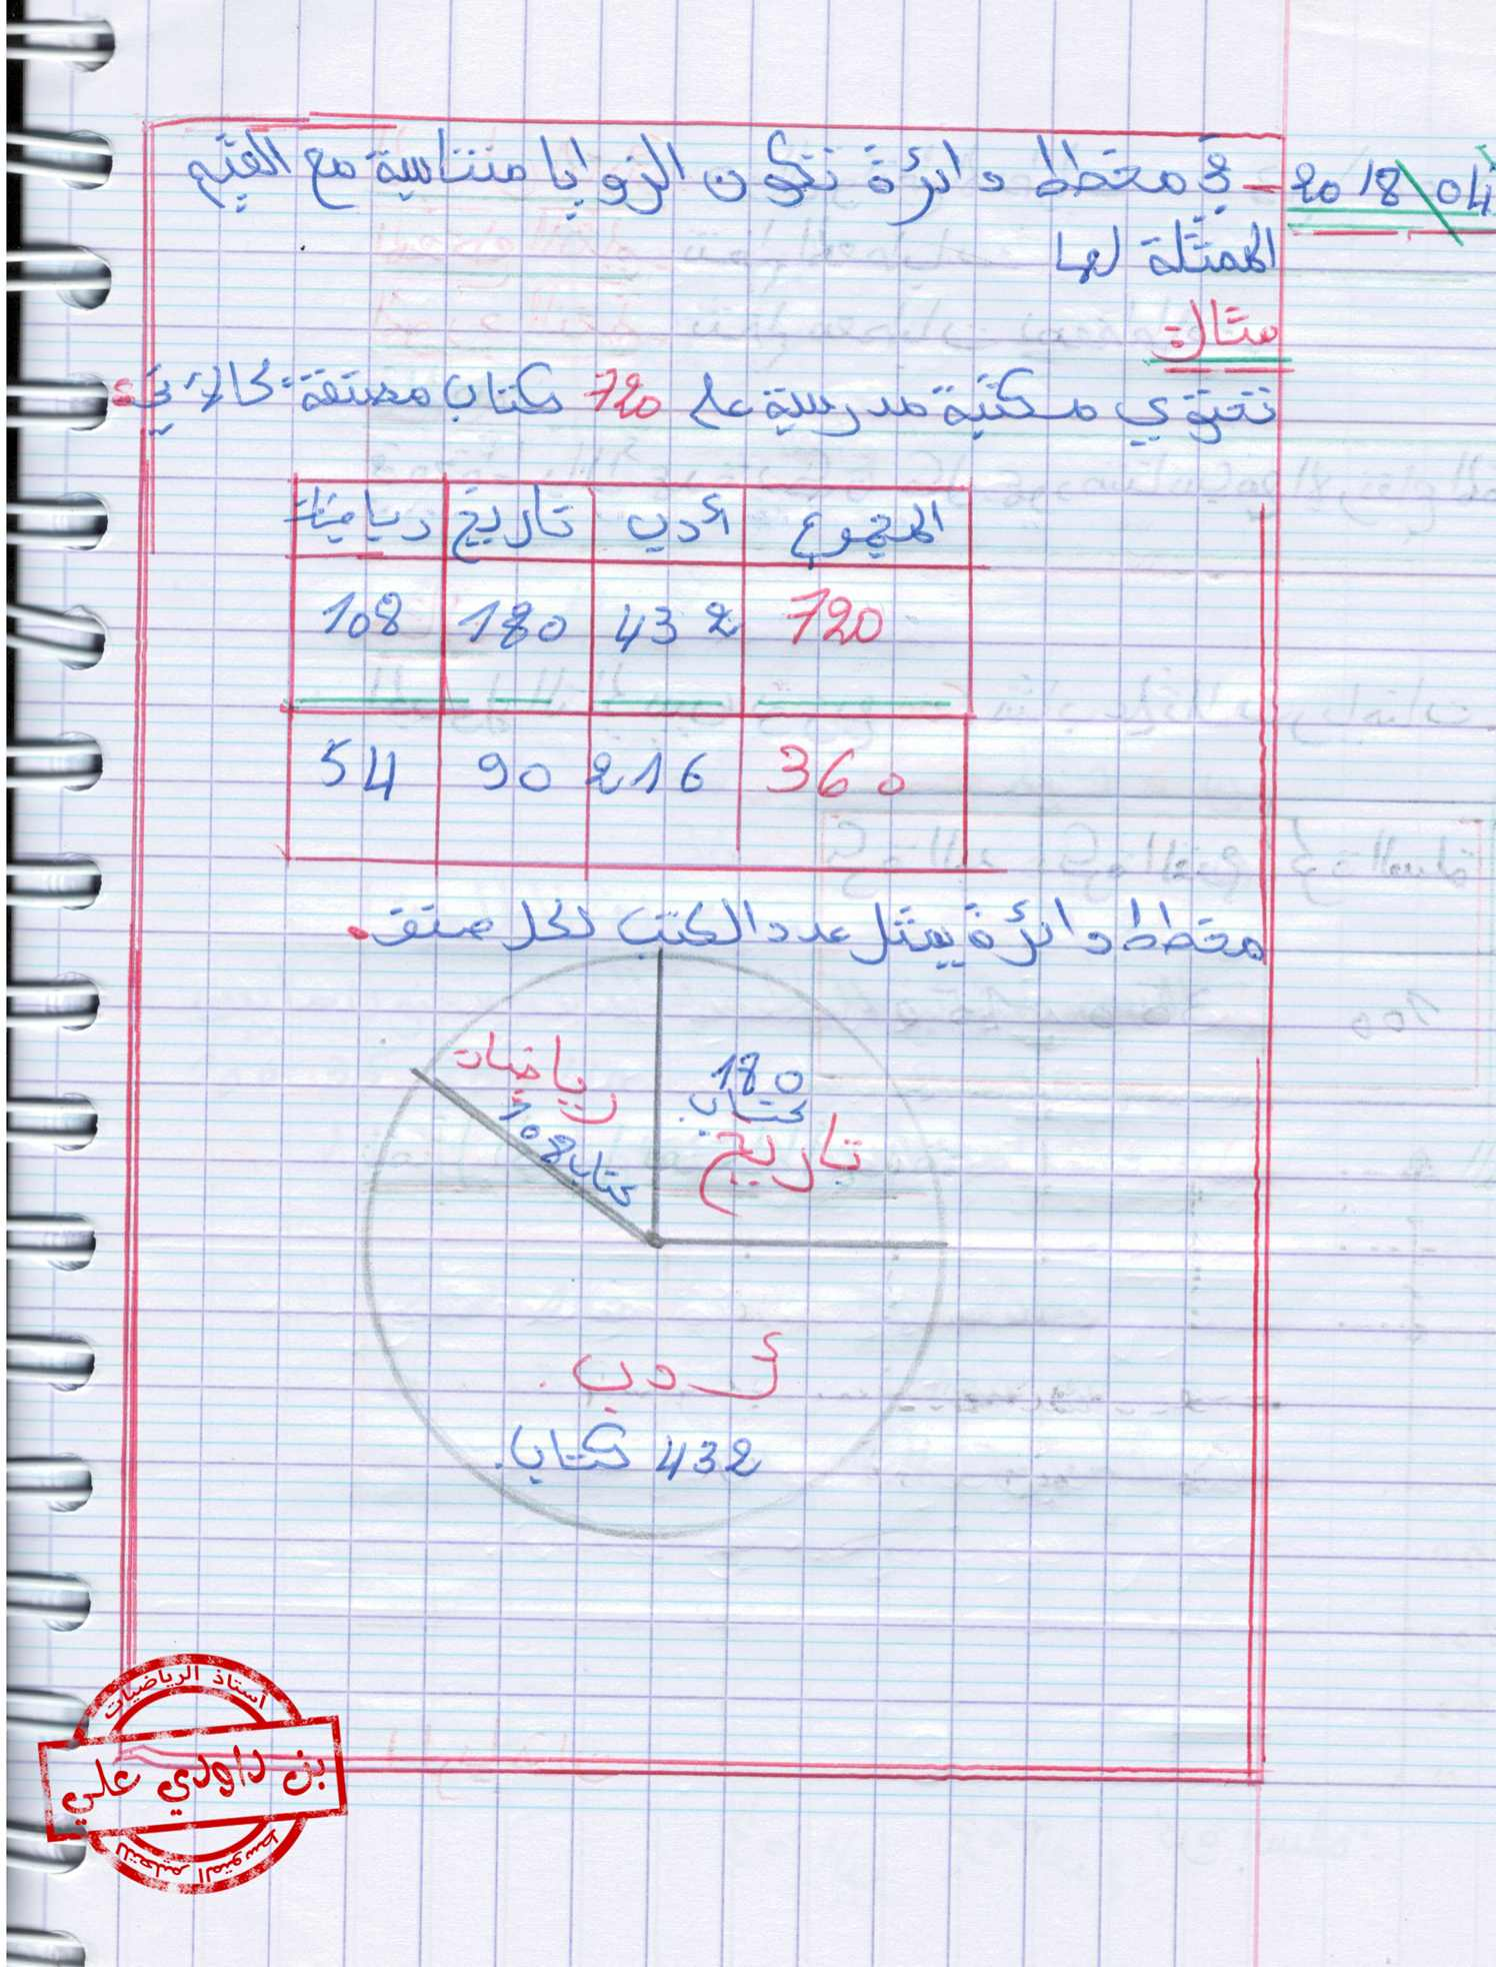 2018\04
- في مخطط دائرة تكون الزوايا متناسبة مع القيم
الممثلة لها
مثال:
تحتوي مكتبة مدرسية على 720 كتاب مصنفة كالآتي:
المجموع أدب تاريخ رياضيات
720 432 180 108
360 216 90 54
مخطط دائرة يمثل عدد الكتب لكل صنف.
رياضيات
108 كتاب
180
كتاب
تاريخ
أدب
432 كتاب.
أستاذ الرياضيات
بن داودي علي
للتعليم المتوسط